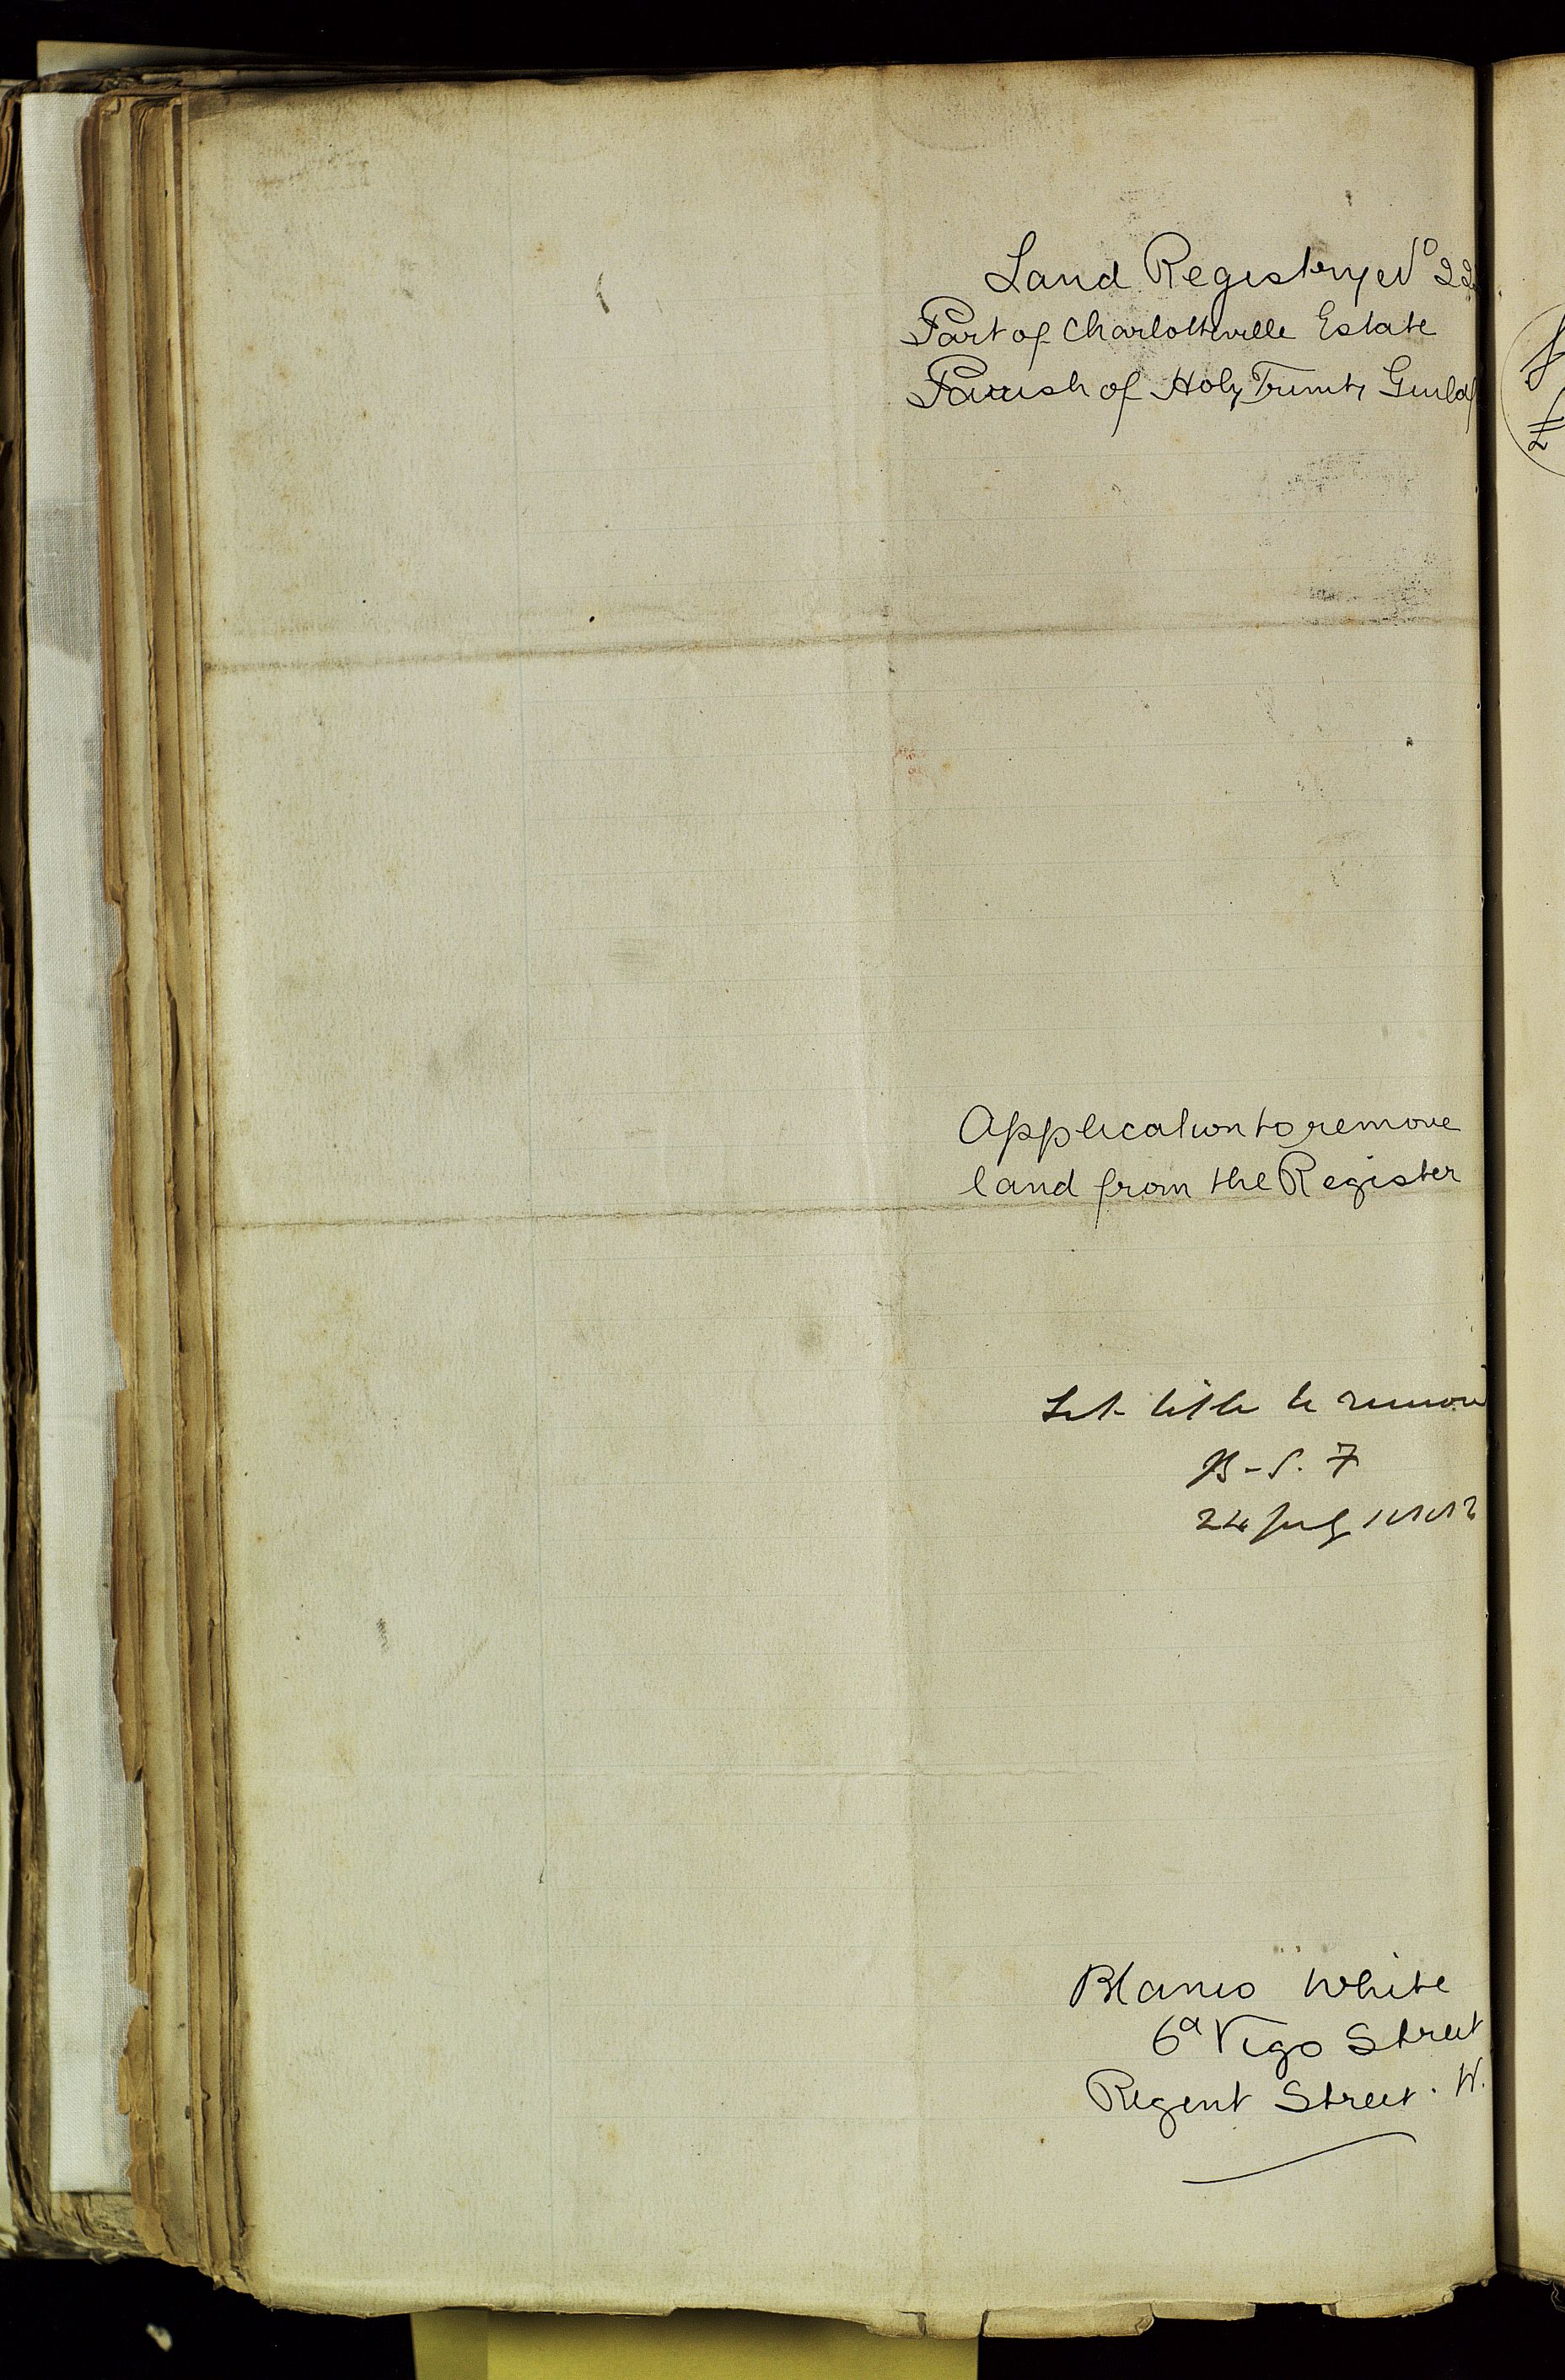 Land Registry No 22
Part of Charlotteville Estate
Parish of Holy Trinity Guildf
Application to remove
land from the Register
Let title be removed
B. S. F
24 July
Blanco White
6a Vigo Street
Regent Street. W.